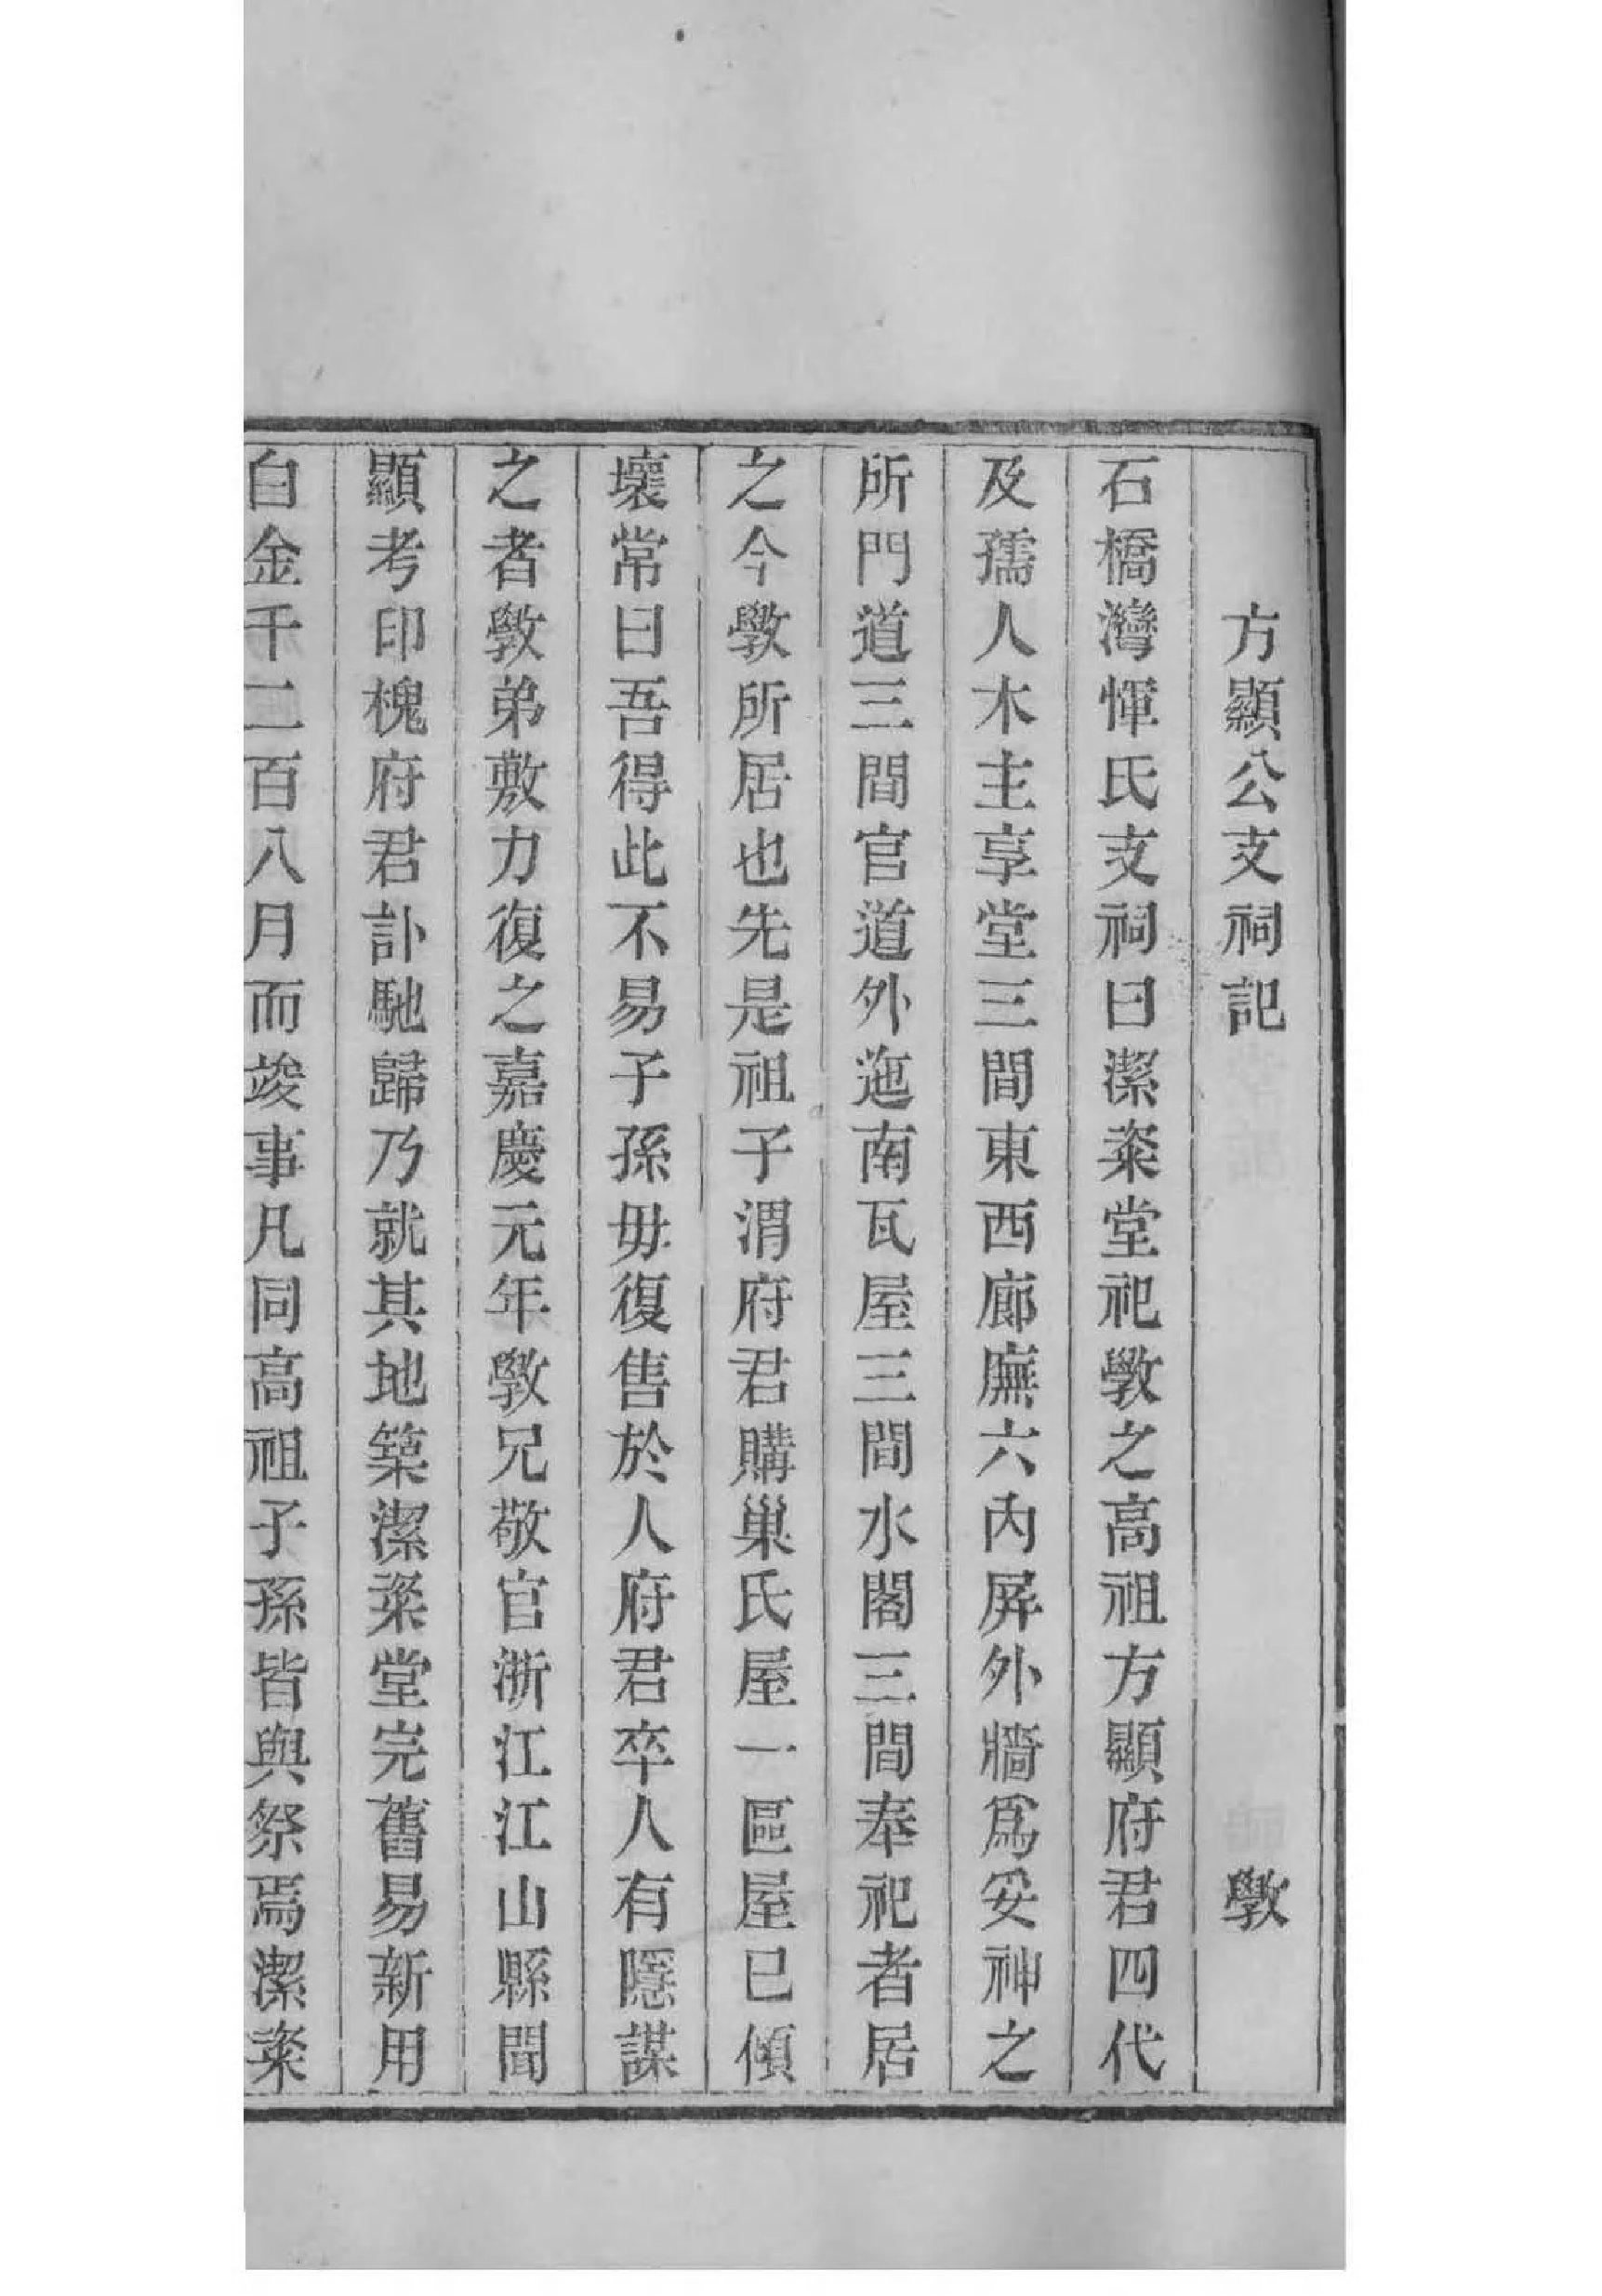 方顯公支祠記 斆
石橋灣惲氏支祠曰潔粢堂祀斆之高祖方顯府君四代
及孺人木主享堂三間東西廊廡六內屏外牆爲妥神之
所門道三間官道外迤南瓦屋三間水閣三間奉祀者居
之今斆所居也先是祖子渭府君購巢氏屋一區屋已傾
壞常曰吾得此不易子孫毋復售於人府君卒人有隱謀
之者斆弟敷力復之嘉慶元年斆兄敬官浙江江山縣聞
顯考印槐府君訃馳歸乃就其地築潔粢堂完舊易新用
白金千二百八月而竣事凡同高祖子孫皆與祭焉潔粢